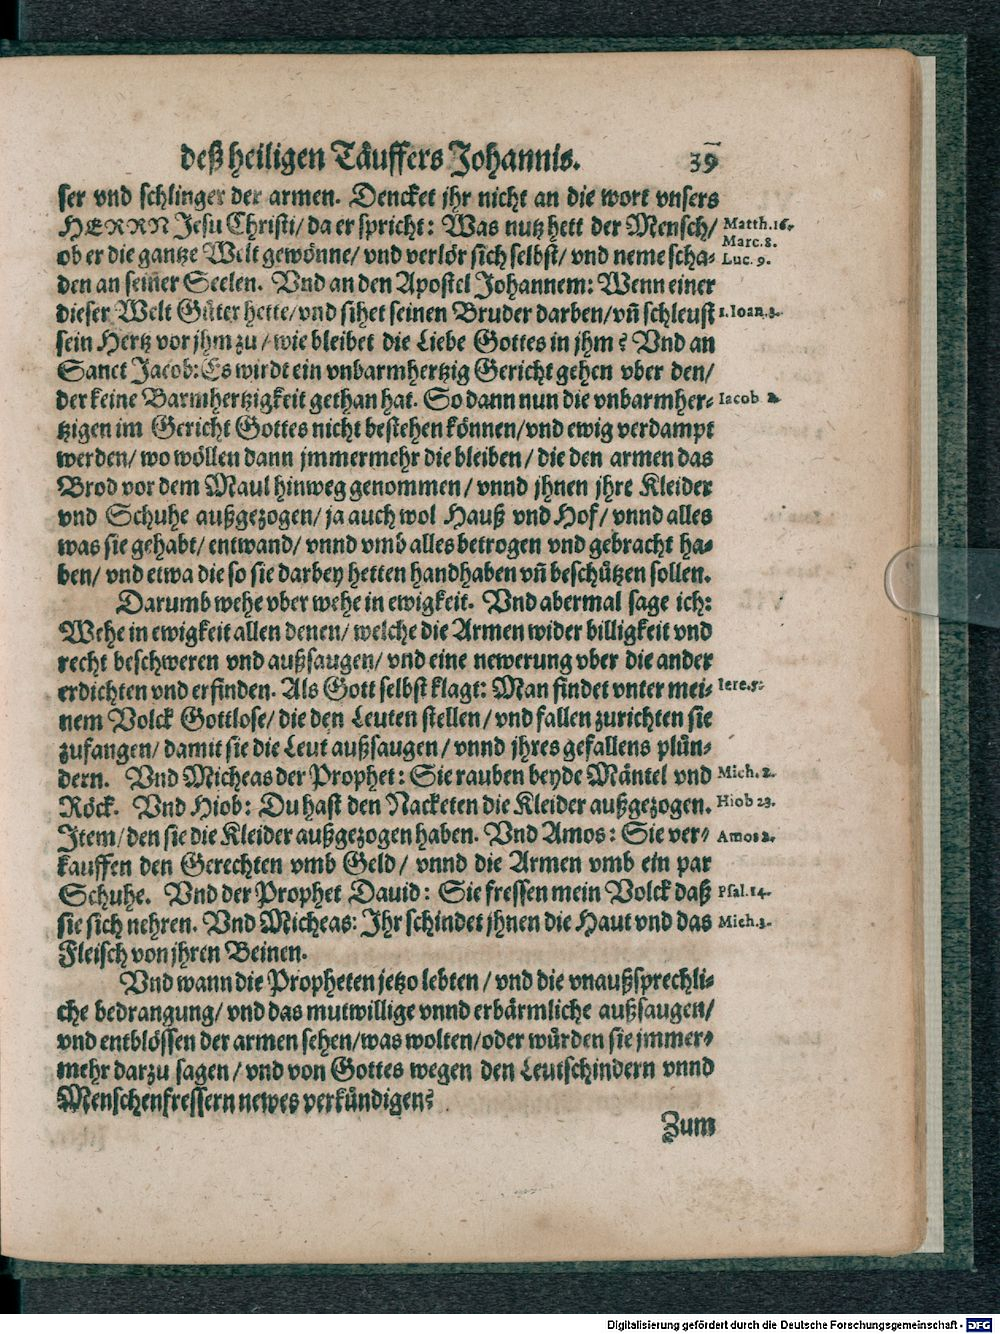 deß heiligen Täuffers Johannis. 39
ser vnd schlinger der armen. Dencket jhr nicht an die wort vnsers
HERRN Jesu Christi/ da er spricht: Was nutz hett der Mensch/ Matth.16.
Marc.8.
ob er die gantze Welt gewönne/ vnd verlör sich selbst/ vnd neme scha- Luc. 9.
den an seiner Seelen. Vnd an den Apostel Johannem: Wenn einer
dieser Welt Güter hette/ vnd sihet seinen Bruder darben/ vñ schleust 1. Ioan.3.
sein Hertz vor jhm zu/ wie bleibet die Liebe Gottes in jhm? Vnd an
Sanct Jacob: Es wirdt ein vnbarmhertzig Gericht gehen vber den/
der keine Barmhertzigkeit gethan hat. So dann nun die vnbarmher- Iacob 2.
tzigen im Gericht Gottes nicht bestehen können/ vnd ewig verdampt
werden/ wo wöllen dann jmmermehr die bleiben/ die den armen das
Brod vor dem Maul hinweg genommen/ vnnd jhnen jhre Kleider
vnd Schuhe außgezogen/ ja auch wol Hauß vnd Hof/ vnnd alles
was sie gehabt/ entwand/ vnnd vmb alles betrogen vnd gebracht ha-
ben/ vnd etwa die so sie darbey hetten handhaben vñ beschützen sollen.
Darumb wehe vber wehe in ewigkeit. Vnd abermal sage ich:
Wehe in ewigkeit allen denen/ welche die Armen wider billigkeit vnd
recht beschweren vnd außsaugen/ vnd eine newerung vber die ander
erdichten vnd erfinden. Als Gott selbst klagt: Man findet vnter mei- Iere.5.
nem Volck Gottlose/ die den Leuten stellen/ vnd fallen zurichten sie
zufangen/ damit sie die Leut außsaugen/ vnnd jhres gefallens plün-
dern. Vnd Micheas der Prophet: Sie rauben beyde Mäntel vnd Mich. 2.
Röck. Vnd Hiob: Du hast den Nacketen die Kleider außgezogen. Hiob 23.
Item/ den sie die Kleider außgezogen haben. Vnd Amos: Sie ver- Amos 2.
kauffen den Gerechten vmb Geld/ vnnd die Armen vmb ein par
Schuhe. Vnd der Prophet Dauid: Sie fressen mein Volck daß Psal.14.
sie sich nehren. Vnd Micheas: Ihr schindet jhnen die Haut vnd das Mich.3.
Fleisch von jhren Beinen.
Vnd wann die Propheten jetzo lebten/ vnd die vnaußsprechli-
che bedrangung/ vnd das mutwillige vnnd erbärmliche außsaugen/
vnd entblössen der armen sehen/ was wolten/ oder würden sie jmmer-
mehr darzu sagen/ vnd von Gottes wegen den Leutschindern vnnd
Menschenfressern newes verkündigen?
Zum
Digitalisierung gefördert durch die Deutsche Forschungsgemeinschaft - DFG